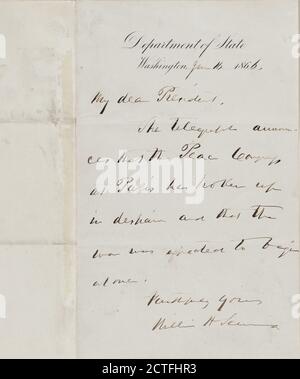 Department of State
Washington, June 16 1866.
My dear President.
The telegraph announ-
ces that the Peace Congress
at Paris has broken up
in despair and that the
war was expected to begin
at once.
Faithfully Yours
William H Seward
alamy
Image ID: 2CTFHR3
www.alamy.com